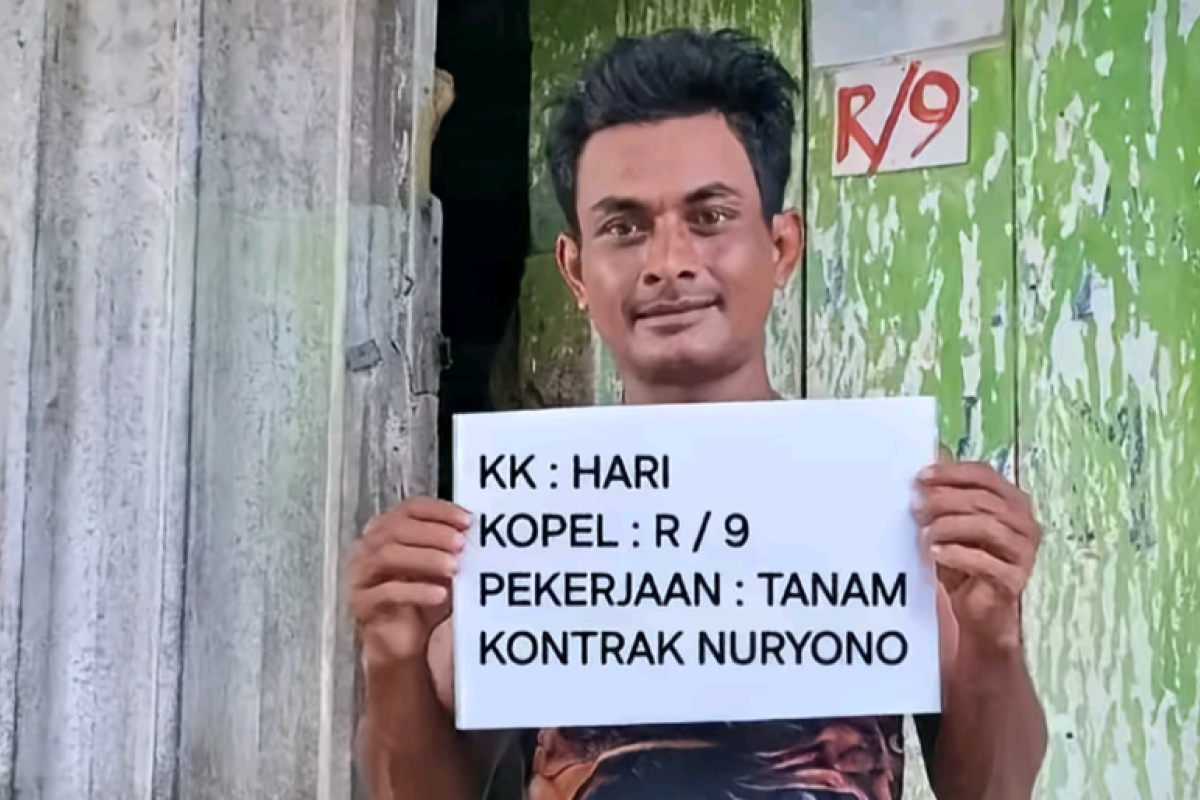 R/9
KK : HARI
KOPEL : R / 9
PEKERJAAN : TANAM
KONTRAK NURYONO